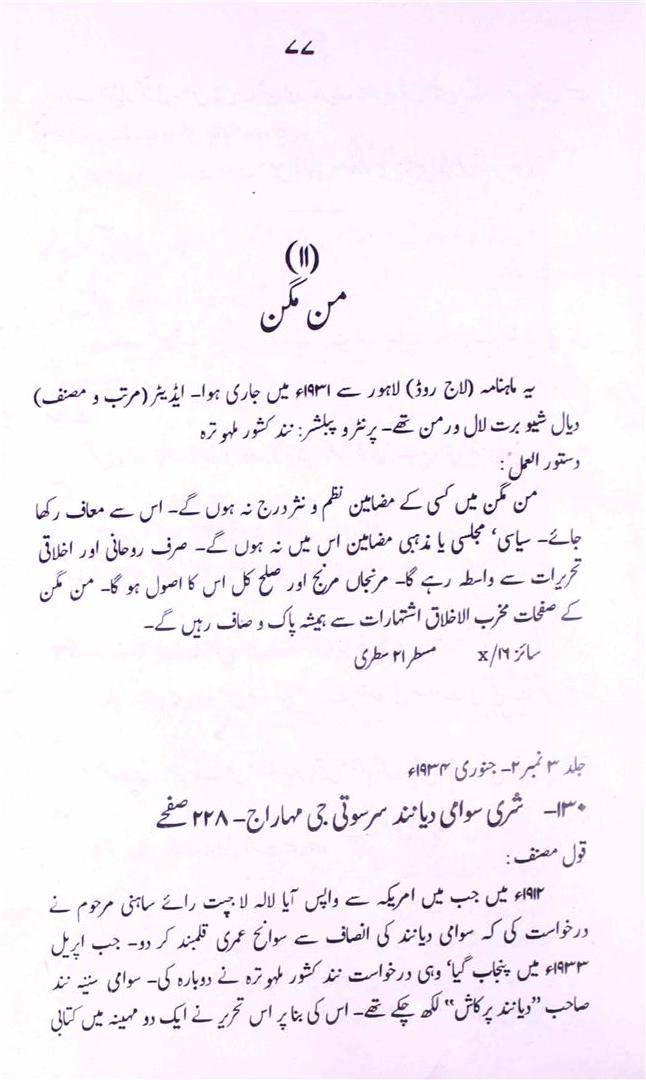 ۷۷
(۱۱)
من مگن
یہ ماہنامہ (لاج روڈ) لاہور سے ۱۹۳۱ء میں جاری ہوا۔ ایڈیٹر (مرتب و مصنف)
دیال شیو برت لال ورمن تھے۔ پرنٹر و پبلشر: نند کشور ملہوترہ
دستور العمل:
من مگن میں کسی کے مضامین نظم و نثر درج نہ ہوں گے۔ اس سے معاف رکھا
جائے۔ سیاسی، مجلسی یا مذہبی مضامین اس میں نہ ہوں گے۔ صرف روحانی اور اخلاقی
تحریرات سے واسطہ رہے گا۔ مرنجاں مرنج اور صلح کل اس کا اصول ہو گا۔ من مگن
کے صفحات مخرب الاخلاق اشتہارات سے ہمیشہ پاک و صاف رہیں گے۔
سائز x/۱۶ مسطر ۲۱ سطری
جلد ۳ نمبر ۲۔ جنوری ۱۹۳۴ء
۱۳۰۔ شری سوامی دیانند سرسوتی جی مہاراج۔ ۲۲۸ صفحے
قول مصنف:
۱۹۱۲ء میں جب میں امریکہ سے واپس آیا لالہ لاجپت رائے ساہنی مرحوم نے
درخواست کی کہ سوامی دیانند کی انصاف سے سوانح عمری قلمبند کر دو۔ جب اپریل
۱۹۳۳ء میں پنجاب گیا، وہی درخواست نند کشور ملہوترہ نے دوبارہ کی۔ سوامی ستیہ نند
صاحب ”دیانند پرکاش“ لکھ چکے تھے۔ اس کی بنا پر اس تحریر نے ایک دو مہینہ میں کتابی